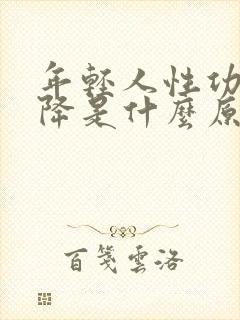 年輕人性功
降是什麼原
百箋雲洛